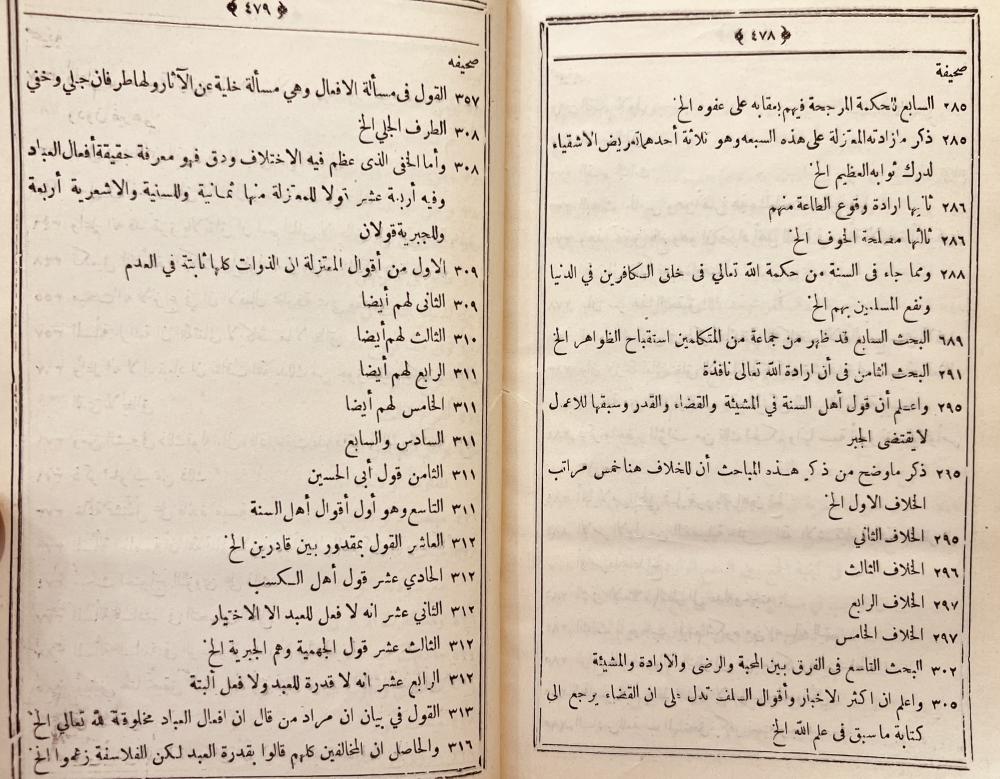 ﴿ ٤٧٨ ﴾
صحيفة
٢٨٥ السابع لحكمة المرجحة فيهم بعقابه على عفوه الخ
٢٨٥ ذكر مازادته المعتزلة على هذه السبعه وهو ثلاثة أحدها تعريض الاشقياء
لدرك ثوابه العظيم الخ
٢٨٦ ثانيها ارادة وقوع الطاعة منهم
٢٨٦ ثالثها مصلحة الخوف الخ
٢٨٨ ومما جاء فى السنة من حكمة الله تعالي فى خلق الكافرين فى الدنيا
ونفع المسلمين بهم الخ
٦٨٩ البحث السابع قد ظهر من جماعة من المتكلمين استقباح الظواهر الخ
٢٩١ البحث الثامن فى أن ارادة الله تعالى نافذة
٢٩٥ واعلم أن قول أهل السنة في المشيئة والقضاء والقدر وسبقها للاعمال
لا يقتضى الجبر
٢٦٥ ذكر ماوضح من ذكر هذه المباحث أن للخلاف هنا خمس مراتب
الخلاف الاول الخ
٢٩٥ الخلاف الثاني
٢٩٦ الخلاف الثالث
٢٩٧ الخلاف الرابع
٢٩٧ الخلاف الخامس
٣٠٢ البحث التاسع فى الفرق بين المحبة والرضى والارادة والمشيئة
٣٠٥ واعلم ان اكثر الاخبار وأقوال السلف تدل على ان القضاء يرجع الى
كتابة ما سبق في علم الله الخ
﴿ ٤٧٩ ﴾
صحيفه
٣٥٧ القول فى مسألة الافعال وهي مسألة خلية عن الآثار ولها طرفان جلي وخفي
٣٠٨ الطرف الجلي الخ
٣٠٨ وأما الخفى الذى عظم فيه الاختلاف ودق فهو معرفة حقيقة أفعال العباد
وفيه أربعة عشر قولا للمعتزلة منها ثمانية وللسنية والاشعرية أربعة
وللجبرية قولان
٣٠٩ الاول من أقوال المعتزلة ان الذوات كلها ثابتة في العدم
٣٠٩ الثانى لهم أيضا
٣١٠ الثالث لهم أيضا
٣١١ الرابع لهم أيضا
٣١١ الخامس لهم أيضا
٣١١ السادس والسابع
٣١١ الثامن قول أبى الحسين
٣١١ التاسع وهو أول أقوال أهل السنة
٣١٢ العاشر القول بمقدور بين قادرين الخ
٣١٢ الحادي عشر قول أهل الكسب
٣١٢ الثاني عشر انه لا فعل للعبد الا الاختيار
٣١٢ الثالث عشر قول الجهمية وهم الجبرية الخ
٣١٢ الرابع عشر انه لا قدرة للعبد ولا فعل ألبتة
٣١٣ القول في بيان ان مراد من قال ان افعال العباد مخلوقة لله تعالي الخ
٣١٦ والحاصل ان المخالفين كلهم قالوا بقدرة العبد لكن الفلاسفة زعموا الخ